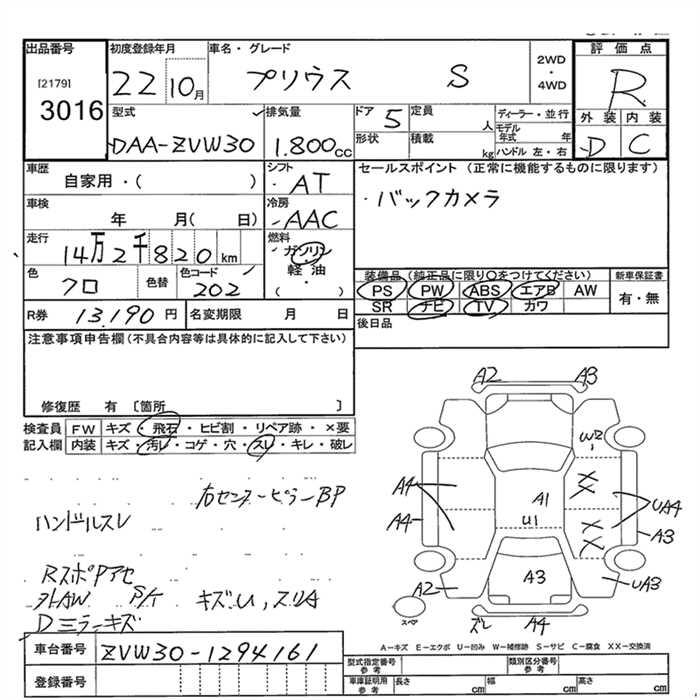 出品番号 初度登録年月 車名・グレード 2WD・4WD 評価点
[2179] 3016 22 10月 プリウス S R
外装 内装
D C
型式 排気量 ドア 5 定員 人 ディーラー・並行
DAA-ZVW30 1.800cc 形状 積載 kg モデル年式 年
ハンドル 左・右
車歴 シフト セールスポイント (正常に機能するものに限ります)
自家用・( ) AT ・バックカメラ
車検 冷房
年 月( 日) AAC
走行 燃料
14万2千820km ガソリン
軽油
・( )
色 色替 色コード
クロ 202
装備品 (純正品に限り○をつけてください) 新車保証書
PS PW ABS エアB AW 有・無
SR ナビ TV カワ
R券 13,190円 名変期限 月 日
後日品
注意事項申告欄(不具合内容等は具体的に記入して下さい)
修復歴 有 〔箇所 〕
検査員 FW キズ・飛石・ヒビ割・リペア跡・×要
記入欄 内装 キズ・汚レ・コゲ・穴・スレ・キレ・破レ
右センターピラーBP
ハンドルスレ
RスポPアセ
外AW キズU,スリA
Dミラーキズ
A2 A3
W2
A4 A1 UA4
A4 U1 A3
A2 A3 UA3
スペア ズレ A4
A－キズ E－エクボ U－凹み W－補修跡 S－サビ C－腐食 XX－交換済
車台番号 ZVW30-1294161
登録番号
型式指定番号 参考 類別区分番号 参考
車庫証明用 参考 長さ cm 幅 cm 高さ cm